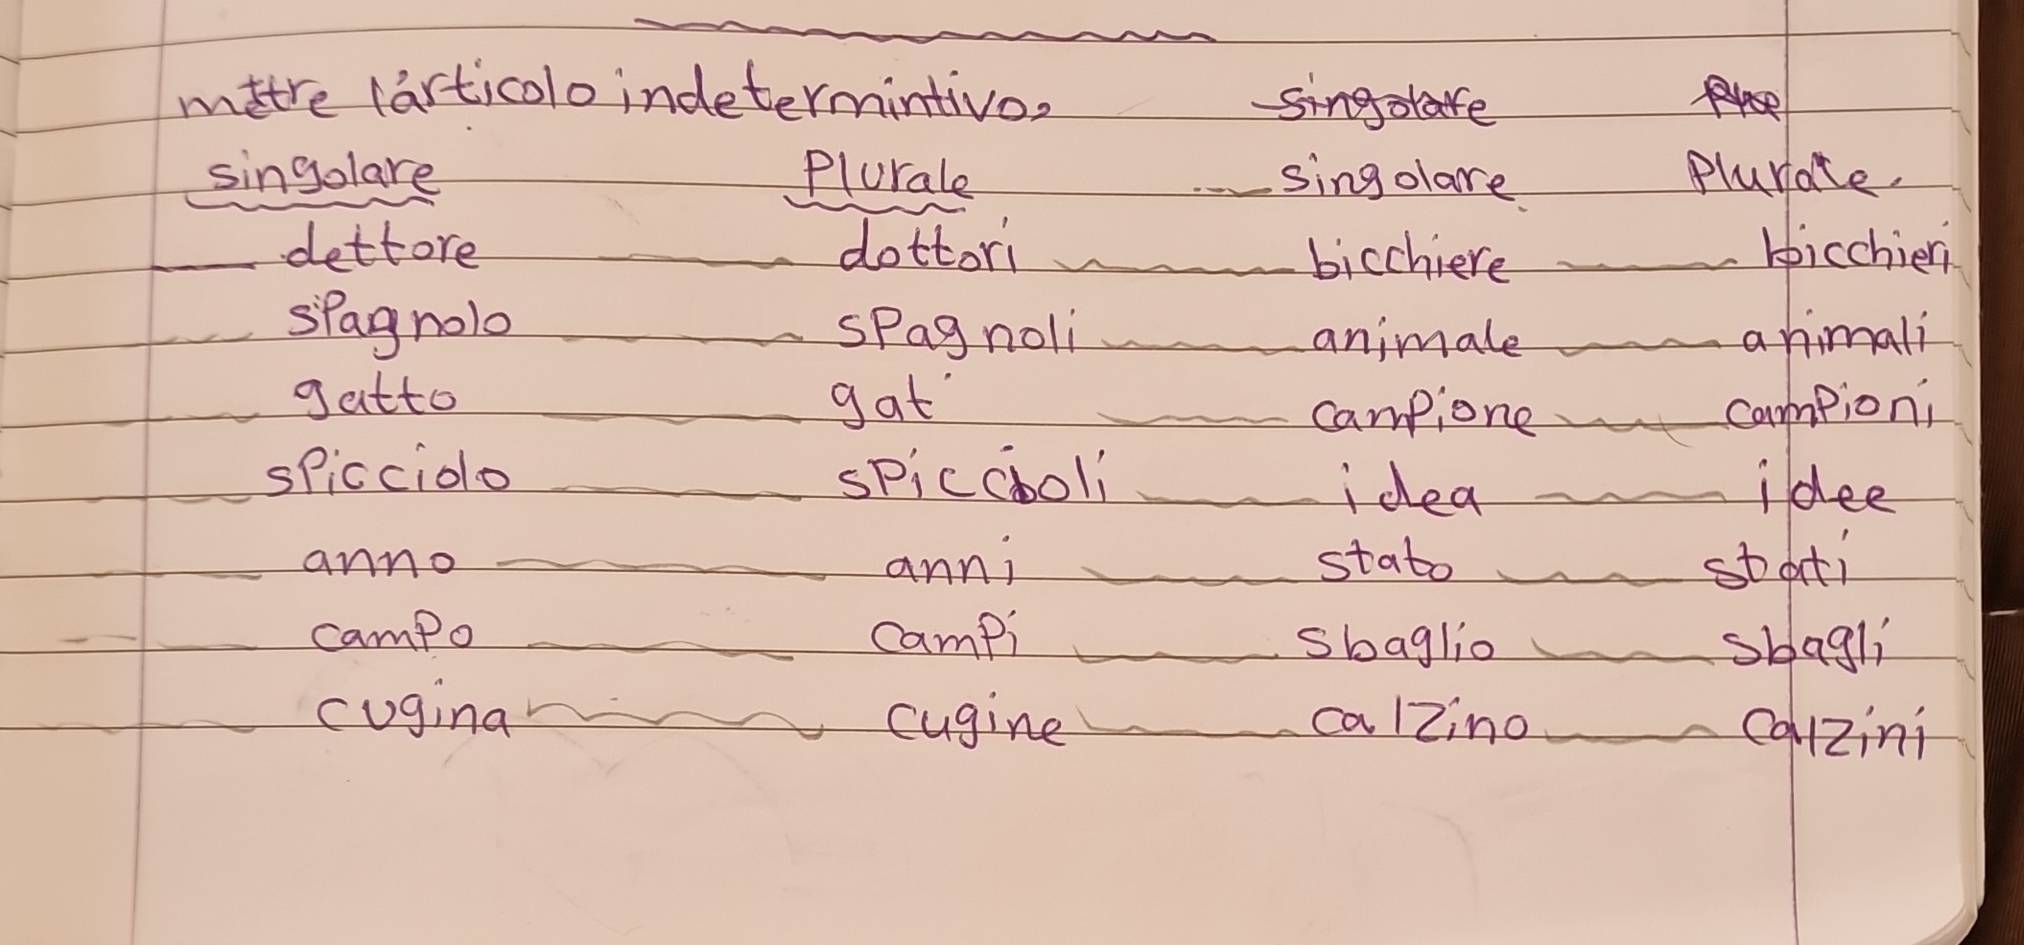 mttre l'articolo indetermintivo. singolare
singolare Plurale singolare Plurale.
dettore dottori bicchiere bicchieri
sPagnolo sPagnoli animale animali
gatto gat campione campioni
sPicciolo sPiccioli idea idee
anno anni stato stati
campo campi sbaglio sbagli
cugina cugine calzino calzini